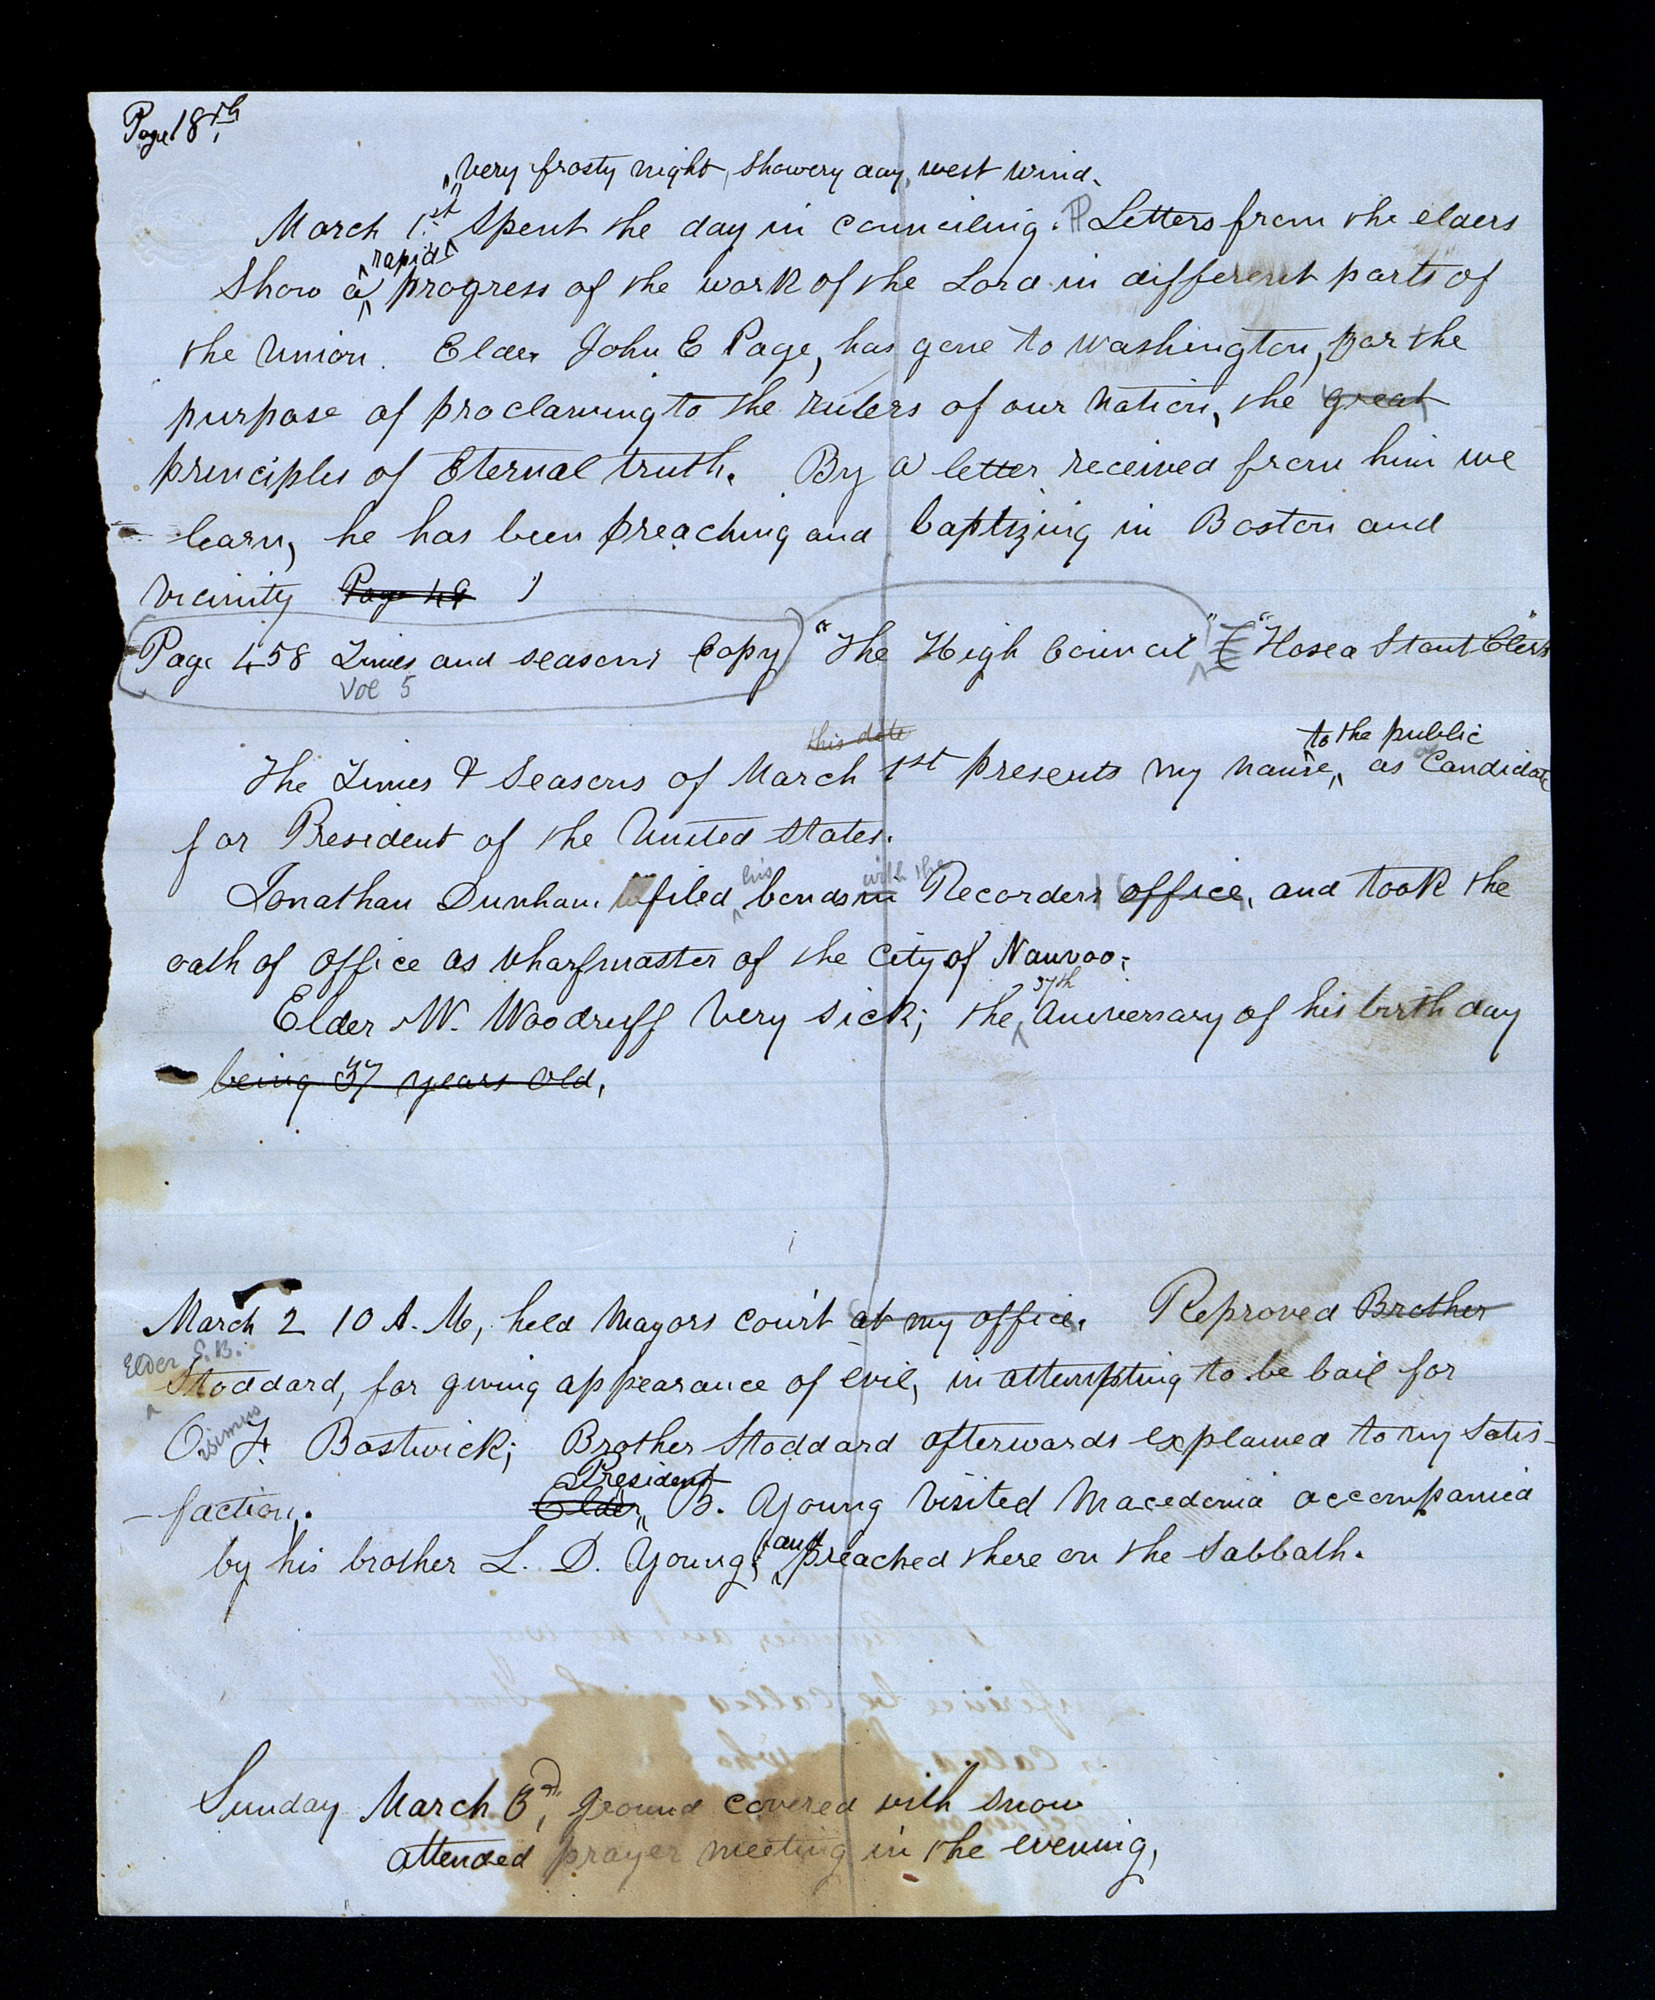 Page 18th
very frosty night, showery day, west wind.
March 1st Spent the day in counciling. P Letters from the elders
rapid
Show a progress of the work of the Lord in different parts of
the Union. Elder John E Page, has gone to Washington, for the
purpose of proclaiming to the rulers of our Nation, the great
principles of Eternal truth. By a letter received from him we
learn, he has been preaching and baptizing in Boston and
vicinity Page 48
Page 458 Times and seasons Copy "The High Council" "Hosea Stout Clerk"
Vol 5
this date
to the public
The Times & Seasons of March 1st presents my name, as Candidate
for President of the United States.
his with the
Jonathan Dunham filed bonds in Recorders office, and took the
oath of office as Wharfmaster of the City of Nauvoo.
37th
Elder W. Woodruff very sick; the anniversary of his birth day
being 37 years old,
March 2 10 A. M, held Mayors court at my office. Reproved Brother
Elder S. B.
Stoddard, for giving appearance of evil, in attempting to be bail for
O. F. Bostwick; Brother Stoddard afterwards explained to my satis-
rsimus
President
-faction. Elder B. Young visited Macedonia accompanied
and
by his brother L. D. Young; preached there on the Sabbath.
Sunday March 3rd, ground covered with snow
attended prayer meeting in the evening,